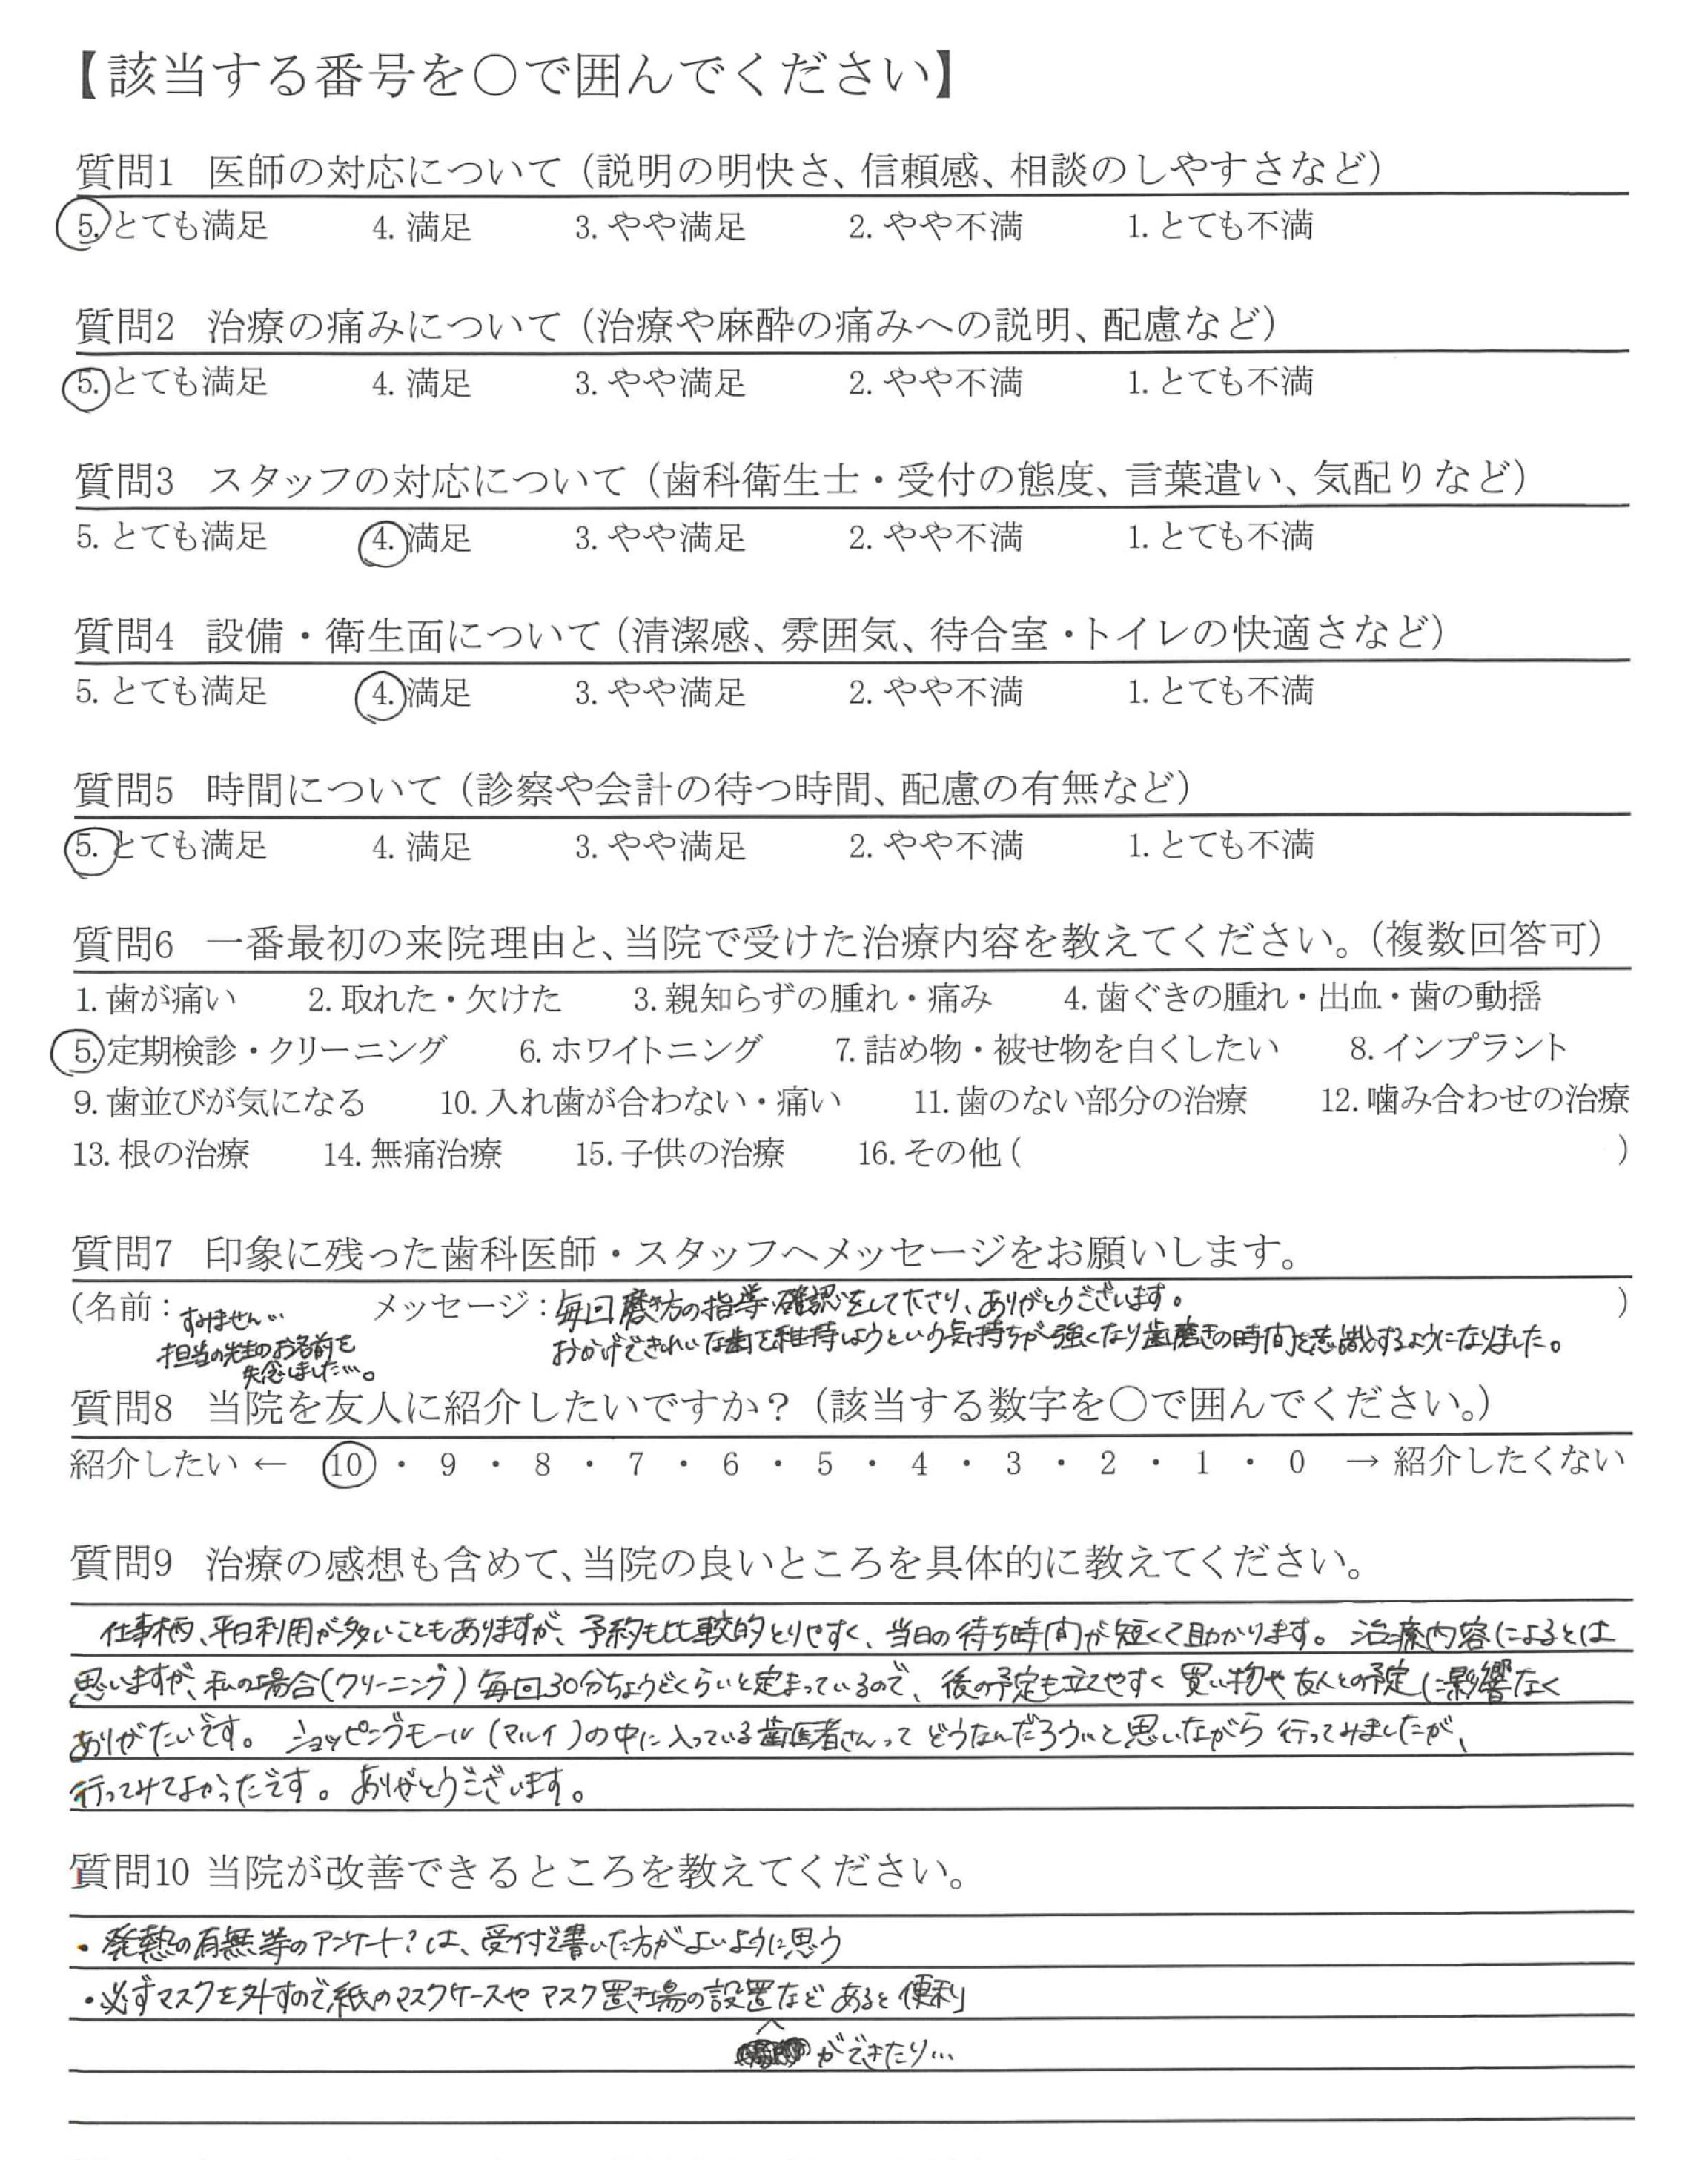 【該当する番号を○で囲んでください】
質問1 医師の対応について（説明の明快さ、信頼感、相談のしやすさなど）
5. とても満足 4. 満足 3. やや満足 2. やや不満 1. とても不満
質問2 治療の痛みについて（治療や麻酔の痛みへの説明、配慮など）
5. とても満足 4. 満足 3. やや満足 2. やや不満 1. とても不満
質問3 スタッフの対応について（歯科衛生士・受付の態度、言葉遣い、気配りなど）
5. とても満足 4. 満足 3. やや満足 2. やや不満 1. とても不満
質問4 設備・衛生面について（清潔感、雰囲気、待合室・トイレの快適さなど）
5. とても満足 4. 満足 3. やや満足 2. やや不満 1. とても不満
質問5 時間について（診察や会計の待つ時間、配慮の有無など）
5. とても満足 4. 満足 3. やや満足 2. やや不満 1. とても不満
質問6 一番最初の来院理由と、当院で受けた治療内容を教えてください。（複数回答可）
1. 歯が痛い 2. 取れた・欠けた 3. 親知らずの腫れ・痛み 4. 歯ぐきの腫れ・出血・歯の動揺
5. 定期検診・クリーニング 6. ホワイトニング 7. 詰め物・被せ物を白くしたい 8. インプラント
9. 歯並びが気になる 10. 入れ歯が合わない・痛い 11. 歯のない部分の治療 12. 噛み合わせの治療
13. 根の治療 14. 無痛治療 15. 子供の治療 16. その他 ( )
質問7 印象に残った歯科医師・スタッフへメッセージをお願いします。
(名前：すみません… メッセージ：毎回磨き方の指導・確認をして下さり、ありがとうございます。 )
担当の先生のお名前を おかげできれいな歯を維持しようという気持ちが強くなり歯磨きの時間を意識するようになりました。
失念しました…。
質問8 当院を友人に紹介したいですか？（該当する数字を○で囲んでください。）
紹介したい ← 10 ・ 9 ・ 8 ・ 7 ・ 6 ・ 5 ・ 4 ・ 3 ・ 2 ・ 1 ・ 0 → 紹介したくない
質問9 治療の感想も含めて、当院の良いところを具体的に教えてください。
仕事柄、平日利用が多いこともありますが、予約も比較的とりやすく、当日の待ち時間が短くて助かります。治療内容によるとは
思いますが、私の場合(クリーニング)毎回30分ちょうどくらいと定まっているので、後の予定も立てやすく買い物や友人との予定に影響なく
ありがたいです。ショッピングモール(マルイ)の中に入っている歯医者さんってどうなんだろう…と思いながら行ってみましたが、
行ってみてよかったです。ありがとうございます。
質問10 当院が改善できるところを教えてください。
・発熱の有無等のアンケート?は、受付で書いた方がよいように思う
・必ずマスクを外すので紙のマスクケースやマスク置き場の設置などあると便利
ができたり…